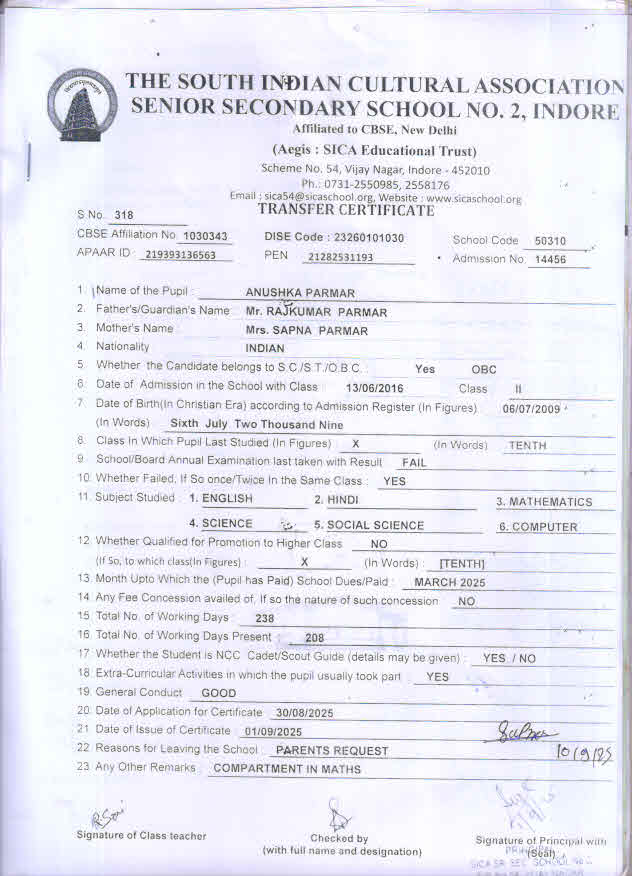 THE SOUTH INDIAN CULTURAL ASSOCIATION
SENIOR SECONDARY SCHOOL NO. 2, INDORE
Affiliated to CBSE, New Delhi
(Aegis : SICA Educational Trust)
Scheme No. 54, Vijay Nagar, Indore - 452010
Ph.: 0731-2550985, 2558176
Email : sica54@sicaschool.org, Website : www.sicaschool.org
TRANSFER CERTIFICATE
S No. 318
CBSE Affiliation No. 1030343 DISE Code : 23260101030 School Code 50310
APAAR ID : 219393136563 PEN 21282531193 Admission No. 14456
1. Name of the Pupil : ANUSHKA PARMAR
2. Father's/Guardian's Name : Mr. RAJKUMAR PARMAR
3. Mother's Name : Mrs. SAPNA PARMAR
4. Nationality INDIAN
5. Whether the Candidate belongs to S.C./S.T./O.B.C. : Yes OBC
6. Date of Admission in the School with Class : 13/06/2016 Class II
7. Date of Birth(In Christian Era) according to Admission Register (In Figures) 06/07/2009
(In Words) Sixth July Two Thousand Nine
8. Class In Which Pupil Last Studied (In Figures) : X (In Words) TENTH
9. School/Board Annual Examination last taken with Result FAIL
10. Whether Failed, If So once/Twice In the Same Class : YES
11. Subject Studied : 1. ENGLISH 2. HINDI 3. MATHEMATICS
4. SCIENCE 5. SOCIAL SCIENCE 6. COMPUTER
12. Whether Qualified for Promotion to Higher Class NO
(If So, to which class(In Figures) : X (In Words) : [TENTH]
13. Month Upto Which the (Pupil has Paid) School Dues/Paid : MARCH 2025
14. Any Fee Concession availed of, If so the nature of such concession NO
15. Total No. of Working Days : 238
16. Total No. of Working Days Present : 208
17. Whether the Student is NCC Cadet/Scout Guide (details may be given) : YES / NO
18. Extra-Curricular Activities in which the pupil usually took part : YES
19. General Conduct GOOD
20. Date of Application for Certificate 30/08/2025
21. Date of Issue of Certificate : 01/09/2025
22. Reasons for Leaving the School : PARENTS REQUEST
10/9/25
23. Any Other Remarks : COMPARTMENT IN MATHS
Signature of Class teacher
Checked by
(with full name and designation)
Signature of Principal with
(Seal)
PRINCIPAL
SICA SR. SEC. SCHOOL NO. 2